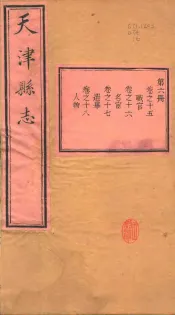 天津縣志
第六冊
卷之十五
職官
卷之十六
名宦
卷之十七
選舉
卷之十八
人物